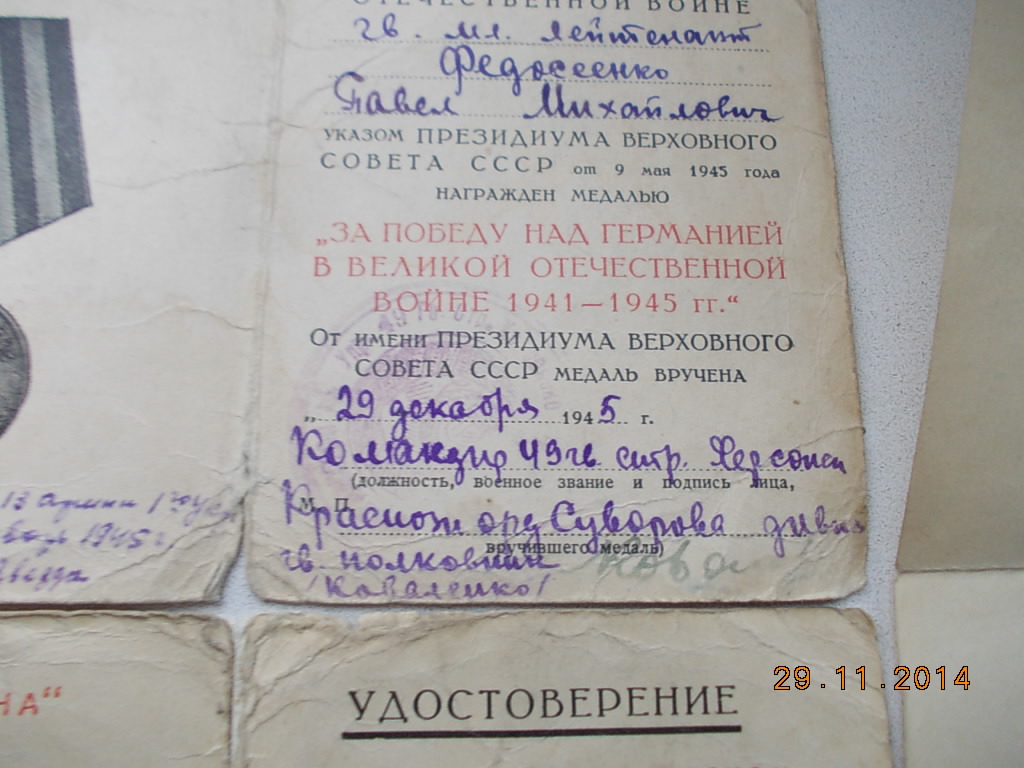 ОТЕЧЕСТВЕННОЙ ВОЙНЕ
гв. мл. лейтенант
Федосеенко
Павел Михайлович
УКАЗОМ ПРЕЗИДИУМА ВЕРХОВНОГО
СОВЕТА СССР от 9 мая 1945 года
НАГРАЖДЕН МЕДАЛЬЮ
„ЗА ПОБЕДУ НАД ГЕРМАНИЕЙ
В ВЕЛИКОЙ ОТЕЧЕСТВЕННОЙ
ВОЙНЕ 1941—1945 гг.“
От имени ПРЕЗИДИУМА ВЕРХОВНОГО
СОВЕТА СССР МЕДАЛЬ ВРУЧЕНА
„ 29 декабря 1945 г.
Командир 49 гв стр. Херсонск
(должность, военное звание и подпись лица,
М. П.
Краснозн орд Суворова дивиз
вручившего медаль)
гв. полковник
/Коваленко/
13 армии
1945 г
звезда
НА“
УДОСТОВЕРЕНИЕ
29.11.2014